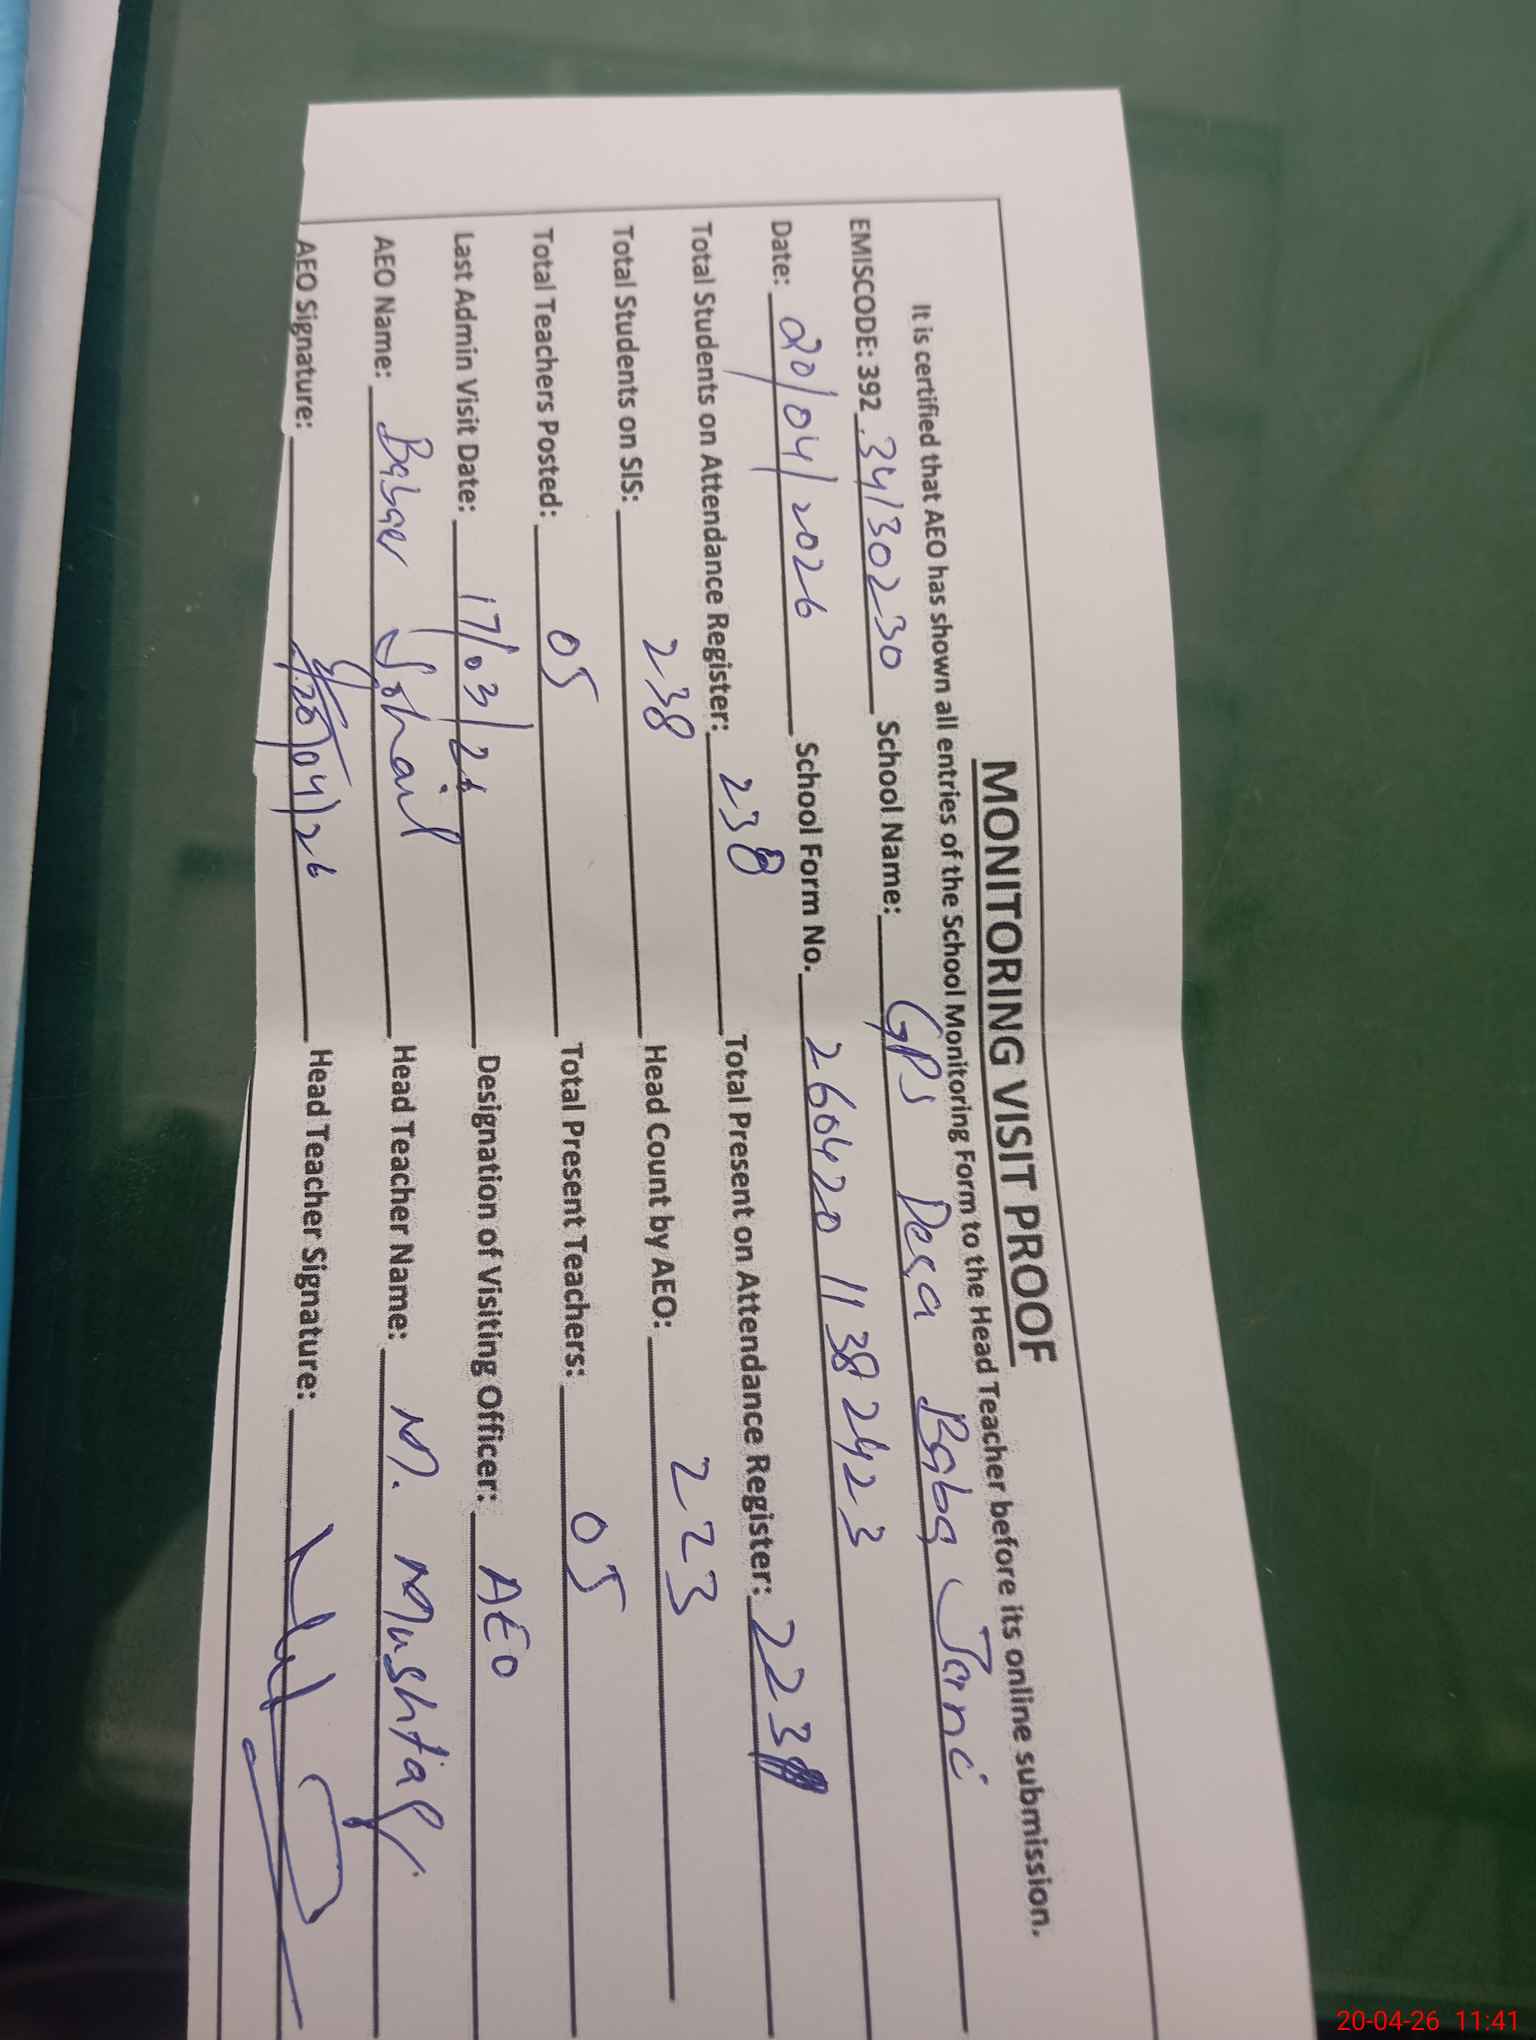 MONITORING VISIT PROOF
It is certified that AEO has shown all entries of the School Monitoring Form to the Head Teacher before its online submission.
EMISCODE: 392 34130230 School Name: GPS Dera Baba Jani
Date: 20/04/2026 School Form No. 260420 1138 2423
Total Students on Attendance Register: 238 Total Present on Attendance Register: 223
Total Students on SIS: 238 Head Count by AEO: 223
Total Teachers Posted: 05 Total Present Teachers: 05
Last Admin Visit Date: 17/03/26 Designation of Visiting Officer: AEO
AEO Name: Babar Sohail Head Teacher Name: M. Mushtaq
AEO Signature: 20/04/26 Head Teacher Signature:
20-04-26 11:41